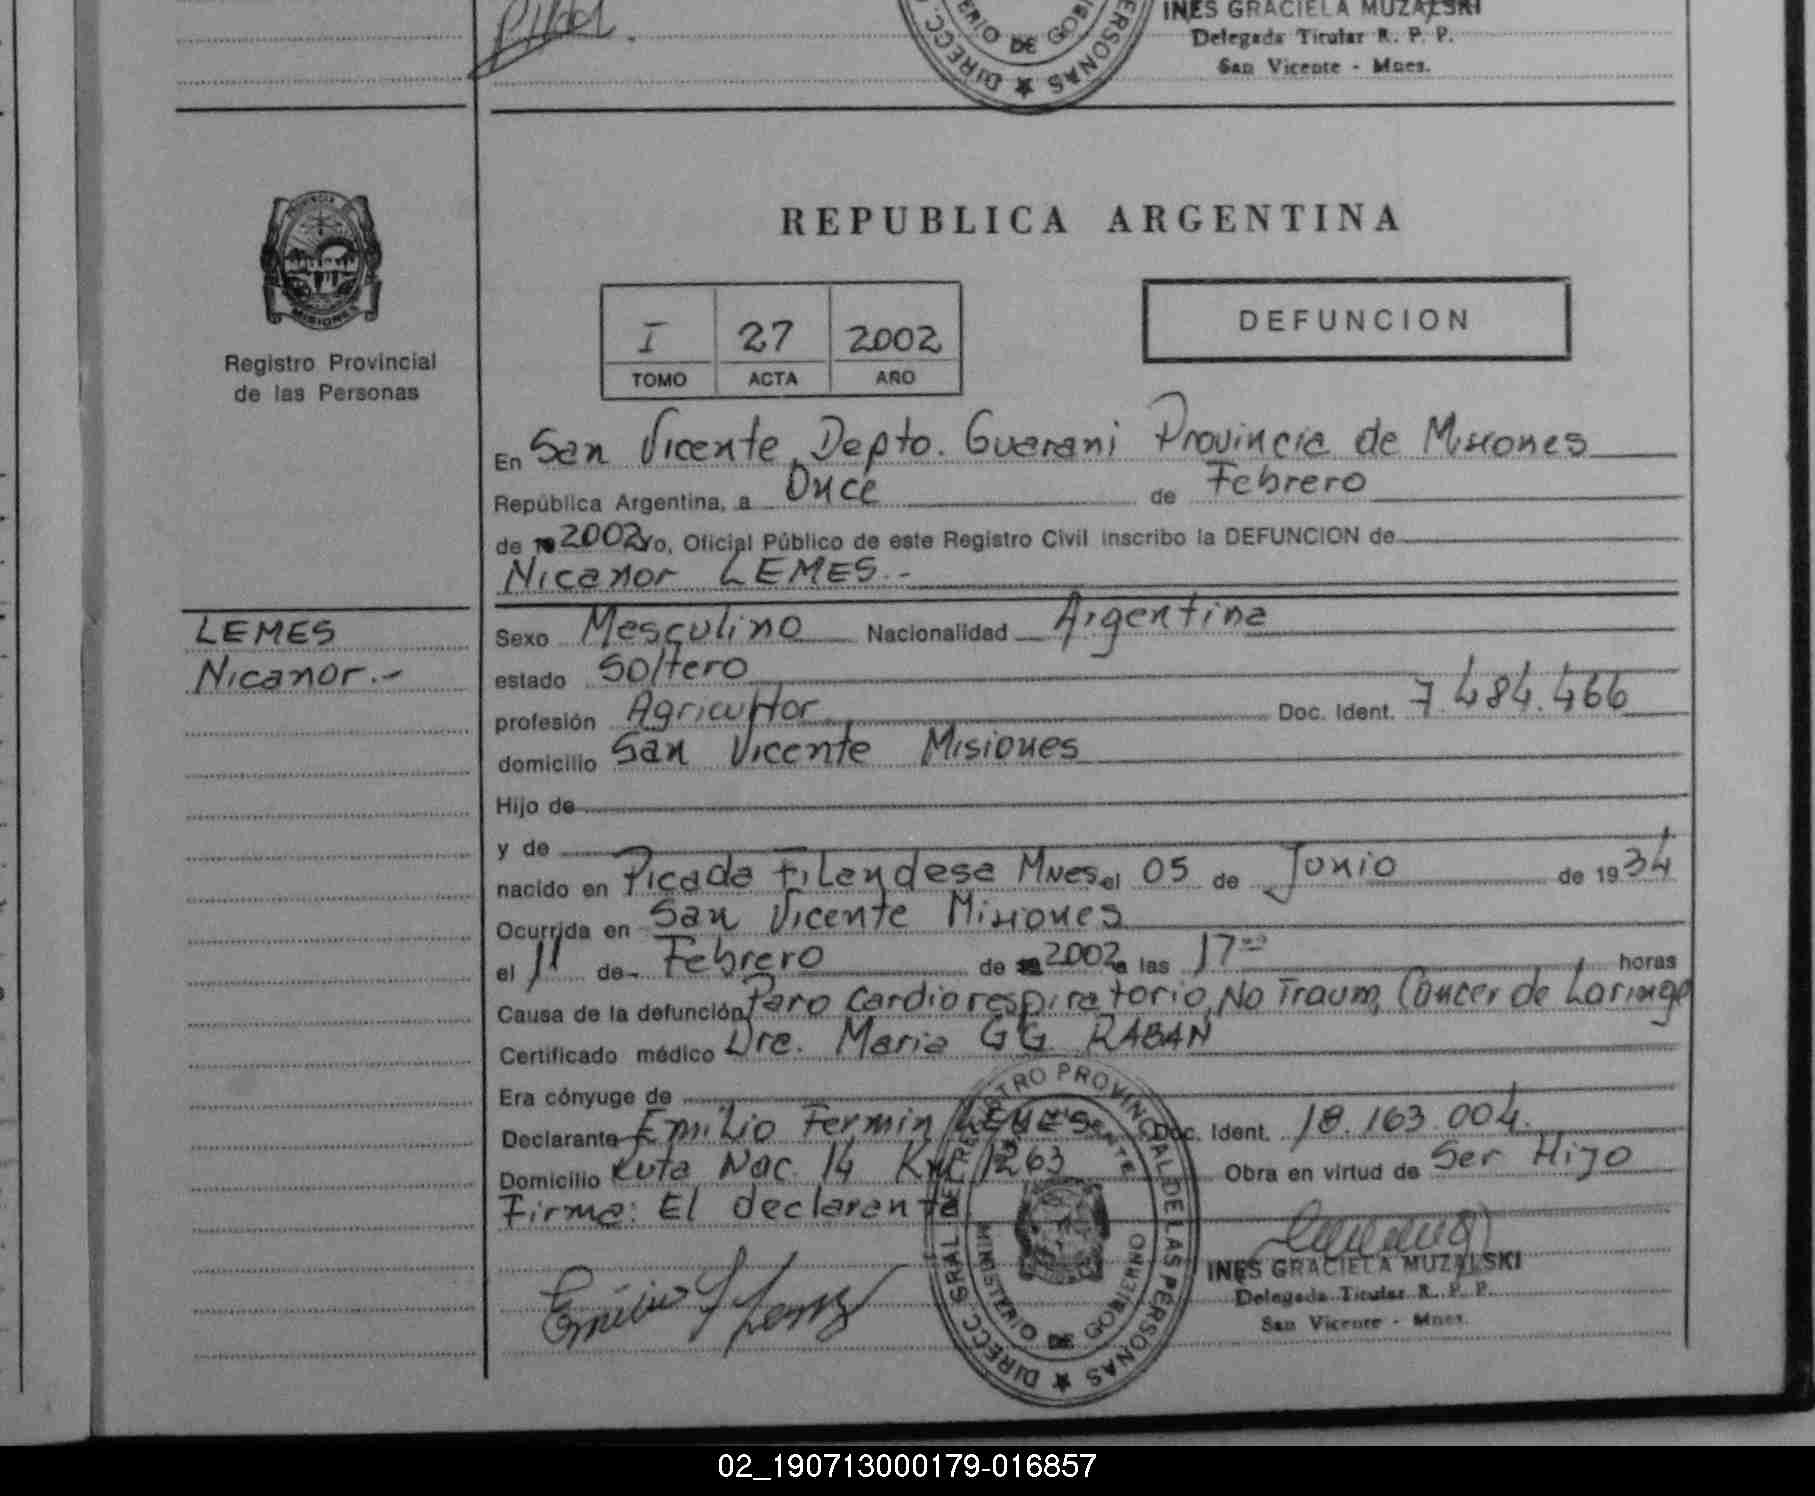 INES GRACIELA MUZALSKI
Delegada Titular R. P. P.
San Vicente - Mnes.
DE GOB
DIRECC
PERSONAS
PROVINCIA
MISIONES
Registro Provincial
de las Personas
REPUBLICA ARGENTINA
I 27 2002
TOMO ACTA AÑO
DEFUNCION
En San Vicente, Depto. Guarani Provincia de Misiones
República Argentina, a Once de Febrero
de 19 2002 yo, Oficial Público de este Registro Civil inscribo la DEFUNCION de
Nicanor LEMES.-
LEMES
Nicanor.-
Sexo Masculino Nacionalidad Argentina
estado Soltero
profesión Agricultor Doc. Ident. 7 484.466
domicilio San Vicente Misiones
Hijo de
y de
nacido en Picada Filandesa Mnes. el 05 de Junio de 1934
Ocurrida en San Vicente Misiones
el 11 de Febrero de 19 2002 a las 17 00 horas
Causa de la defunción Paro Cardiorespiratorio, No Traum, Cancer de Laringe
Certificado médico Dra. Maria G G. RABAN
Era cónyuge de
Declarante Emilio Fermin LEMES Doc. Ident. 18.163.004.
Domicilio Ruta Nac. 14 Km 1263 Obra en virtud de Ser Hijo
Firma: El declarante
DIRECC. GRAL DE REGISTRO PROVINCIAL DE LAS PERSONAS
MINISTERIO DE GOBIERNO
INES GRACIELA MUZALSKI
Delegada Titular R. P. P.
San Vicente - Mnes.
02_190713000179-016857